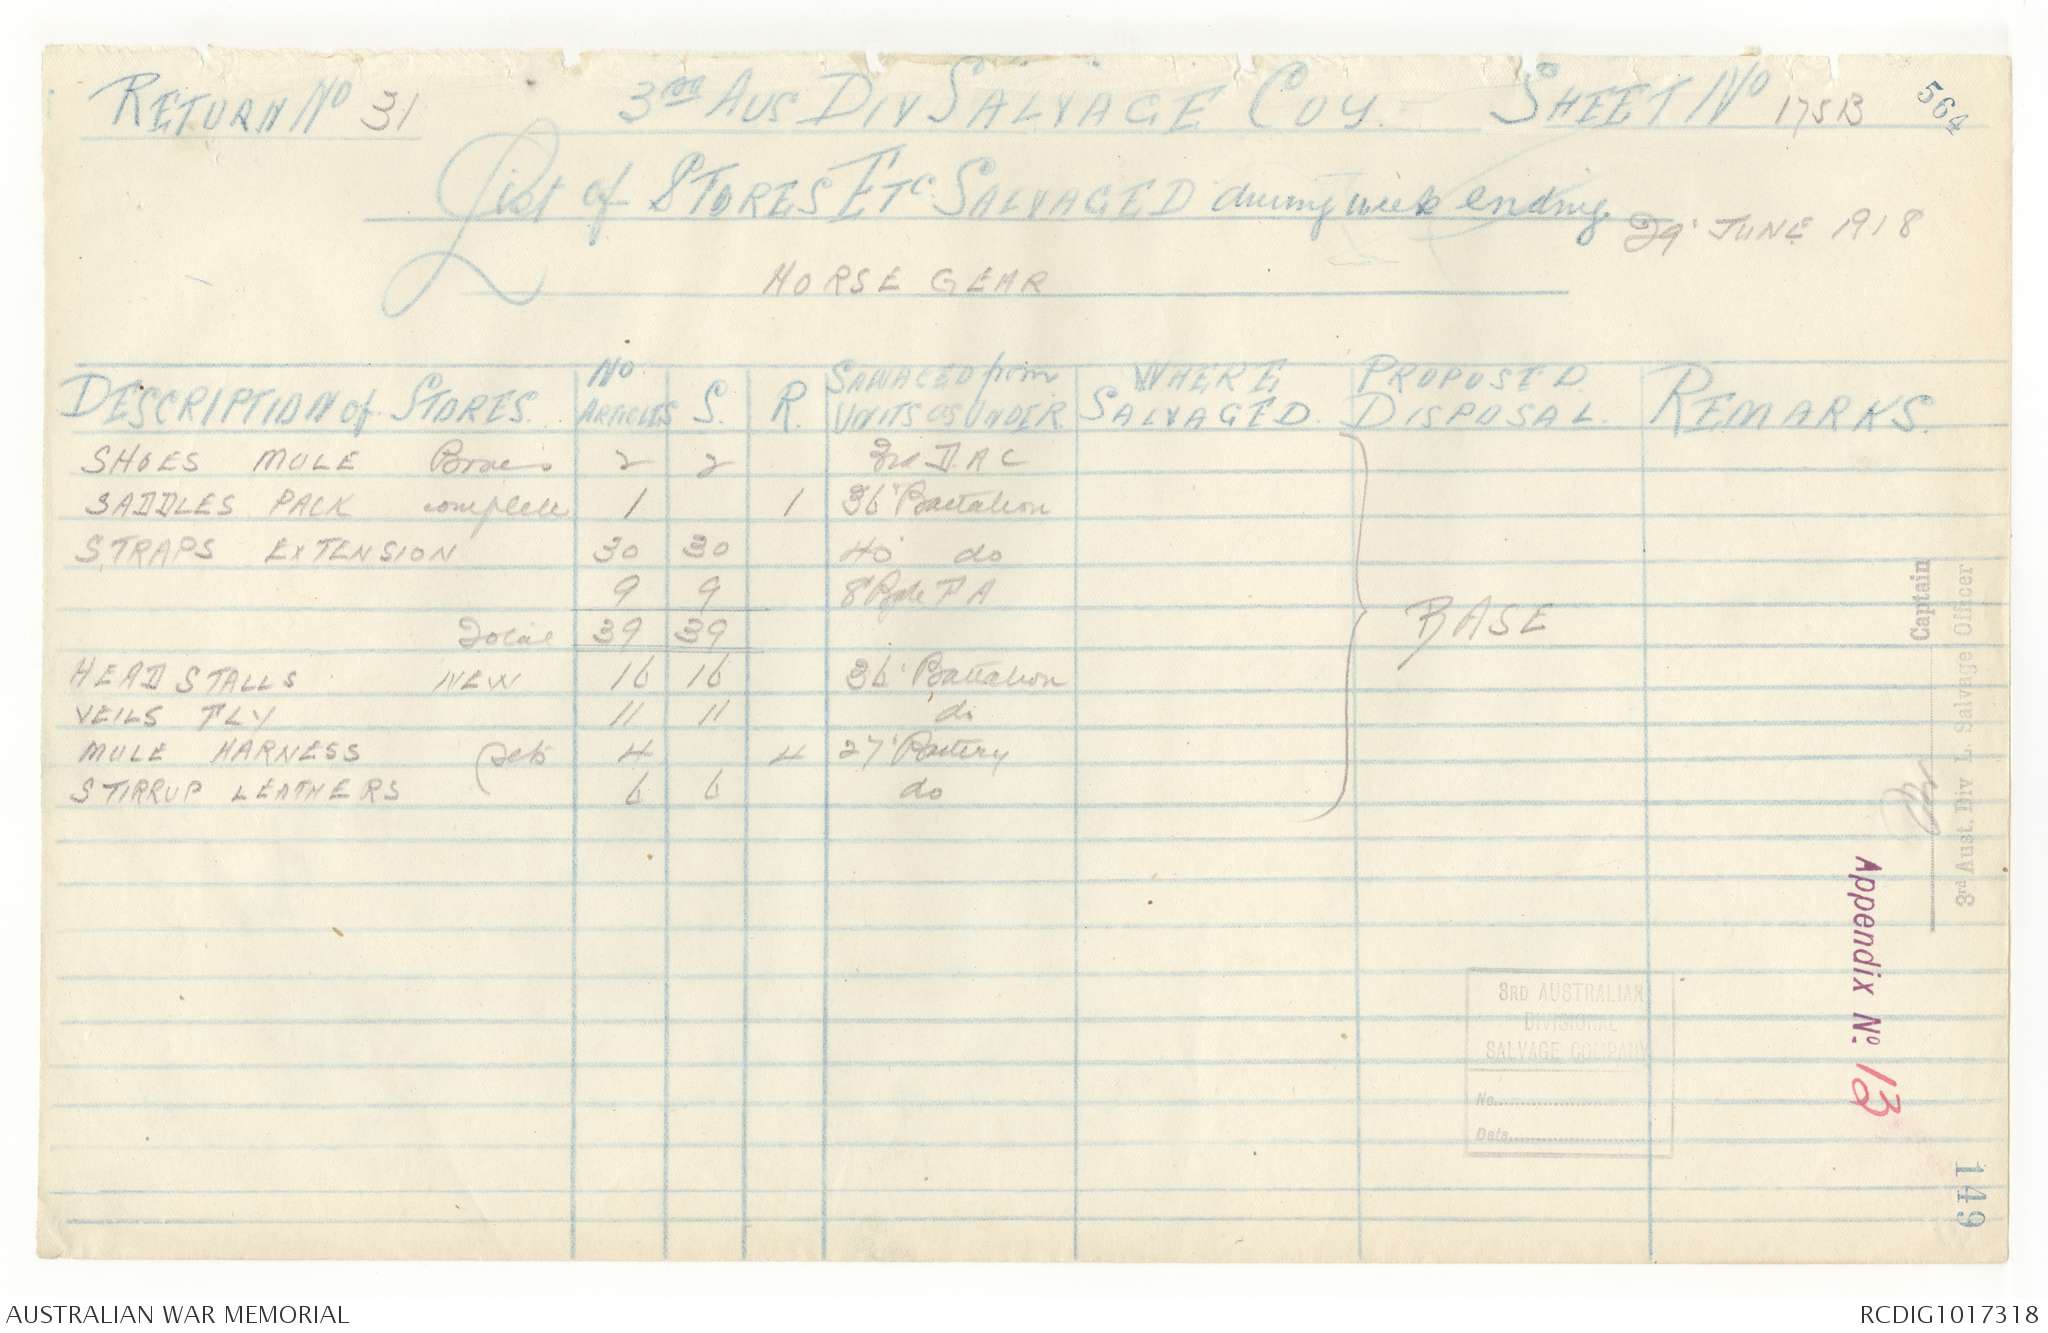 RETURN No 31 3RD AUS DIV SALVAGE COY. SHEET No 175B 564
List of STORES ETC SALVAGED during week ending 29' JUNE 1918
HORSE GEAR
DESCRIPTION of STORES. No ARTICLES S. R. SALVAGED from UNITS as UNDER WHERE SALVAGED. PROPOSED DISPOSAL. REMARKS.
SHOES MULE Boxes 2 2 3rd D.A.C
SADDLES PACK complete 1 1 36' Battalion
STRAPS EXTENSION 30 30 40' do
9 9 8 Bgde F A
Total 39 39
BASE
HEAD STALLS NEW 16 16 36' Battalion
VEILS FLY 11 11 do
MULE HARNESS Sets 4 4 27' Battery
STIRRUP LEATHERS 6 6 do
Captain
3rd Aust. Div L. Salvage Officer
Appendix No. 13
3RD AUSTRALIAN
DIVISIONAL
SALVAGE COMPANY
No.
Date
149
AUSTRALIAN WAR MEMORIAL RCDIG1017318